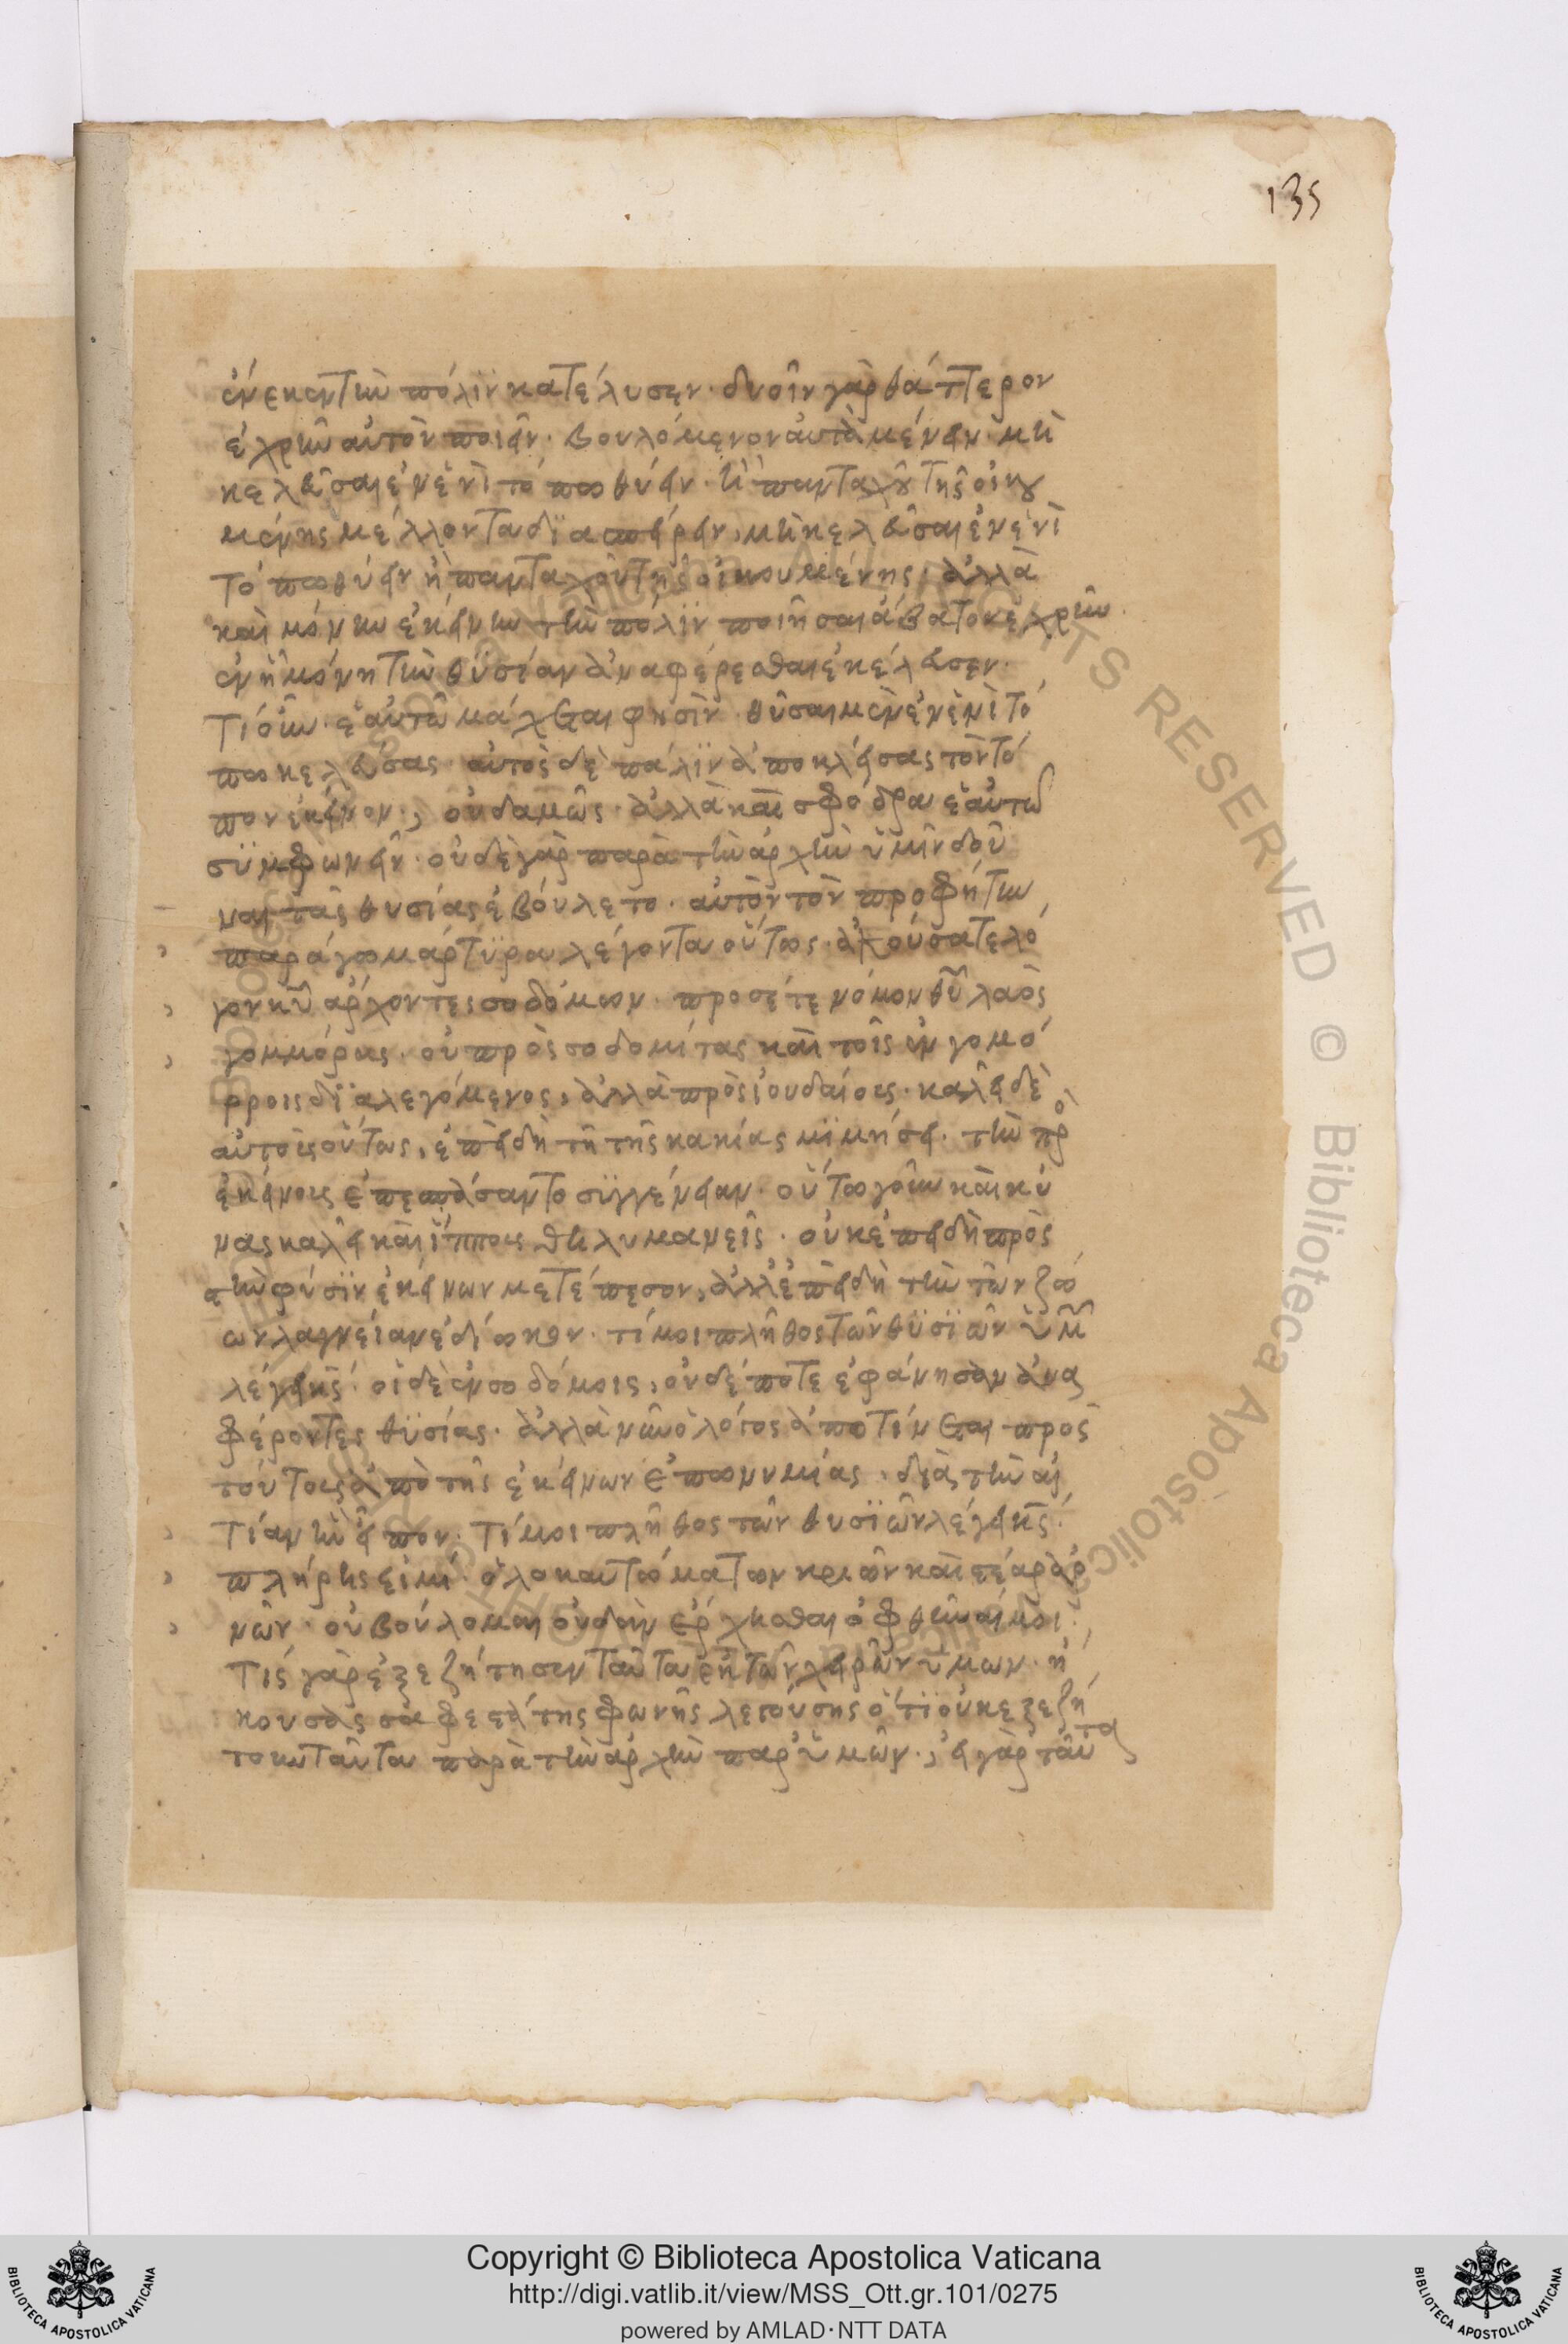 135
ἕνεκεν τὴν πόλϊν κατέλυσεν· δυοῖν γὰρ θάττερον
ἐχρῆν αὐτὸν ποιεῖν· βουλόμενον αὐτὰ μένειν· μὴ
κελεῦσαι ἐν ἑνὶ τόπω θύειν· ἢ πανταχοῦ τῆς οἰκου
μένης μέλλοντα διασπείρειν, μὴ κελεῦσαι ἐν ἑνὶ
τόπω θύειν ἢ πανταχοῦ τῆς οἰκουμένης, ἀλλὰ
καὶ μόνην ἐκείνην τὴν πόλϊν ποιῆσαι ἄβατον ἐχρῆν
ἐν ᾗ μόνη τὴν θϋσίαν ἀναφέρεσθαι ἐκέλευσεν·
τί οὖν· ἑαυτῶ μάχεται φησὶν· θῦσαι μὲν ἐν ἑνὶ τό
πω κελεύσας· αὐτὸς δὲ πάλϊν ἀποκλείσας τὸν τό
πον ἐκεῖνον; οὐδαμῶς· ἀλλὰ καὶ σφόδρα ἑαυτῶ
σϋμφωνεῖν· οὐδὲ γὰρ παρὰ τὴν ἀρχὴν ὑμῖν δοῦ
ναι τὰς θυσίας ἐβούλετο· αὐτὸν τὸν προφήτην
παράγω μάρτϋρα λέγοντα οὕτως· ἀκούσατε λό
γον κῡ ἄρχοντες σοδόμων· προσέχετε νόμον θῡ λαὸς
γομμόρας· οὐ πρὸς σοδομίτας καὶ τοῖς ἐν γομό
ρροις διαλεγόμενος, ἀλλὰ πρὸς ἰουδαίους· καλεῖ δὲ
αὐτοὺς οὕτως, ἐπειδὴ τῆ τῆς κακίας μϊμήσει· τὴν πρὸ
ἐκείνους ἐπεσπάσαντο σϋγγένειαν· οὕτω γοῦν καὶ κύ
νας καλεῖ καὶ ἵππους θηλυμανεῖς· οὐκ ἐπειδὴ πρὸς
τὴν φύσϊν ἐκείνων μετέπεσον, ἀλλ᾽ ἐπειδὴ τὴν τῶν ζώ
ων λαγνείαν ἐδίωκον· τί μοι πλῆθος τῶν θϋσϊῶν ὑμ
λέγει κς· οἱ δὲ ἐν σοδόμοις, οὐδέποτε ἐφάνησαν ἀνα
φέροντες θϋσίας· ἀλλὰ νῦν ὁ λόγος ἀποτίνεται πρὸς
τούτους ἀπὸ τῆς ἐκείνων ἐπωνυμίας· διὰ τὴν αἰ
τίαν ἣν εἶπον· τί μοι πλῆθος τῶν θυσϊῶν λέγει κς·
πλήρης εἰμί· ὁλοκαυτωμάτων κριῶν καὶ στέαρ ἀρ
νῶν· οὐ βούλομαι οὐδ᾽ ἂν ἔρχησθαι ὀφθῆναί μοι·
τίς γὰρ ἐξεζήτησεν ταῦτα ἐκ τῶν χειρῶν ὑμων· ἤ
κουσας σαφεστάτης φωνῆς λεγούσης ὅτϊ οὐκ ἐξεζή
τουν ταῦτα παρὰ τὴν ἀρχὴν παρ᾽ ὑμῶν; εἰ γὰρ ταῦτα
Copyright © Biblioteca Apostolica Vaticana
http://digi.vatlib.it/view/MSS_Ott.gr.101/0275
powered by AMLAD·NTT DATA